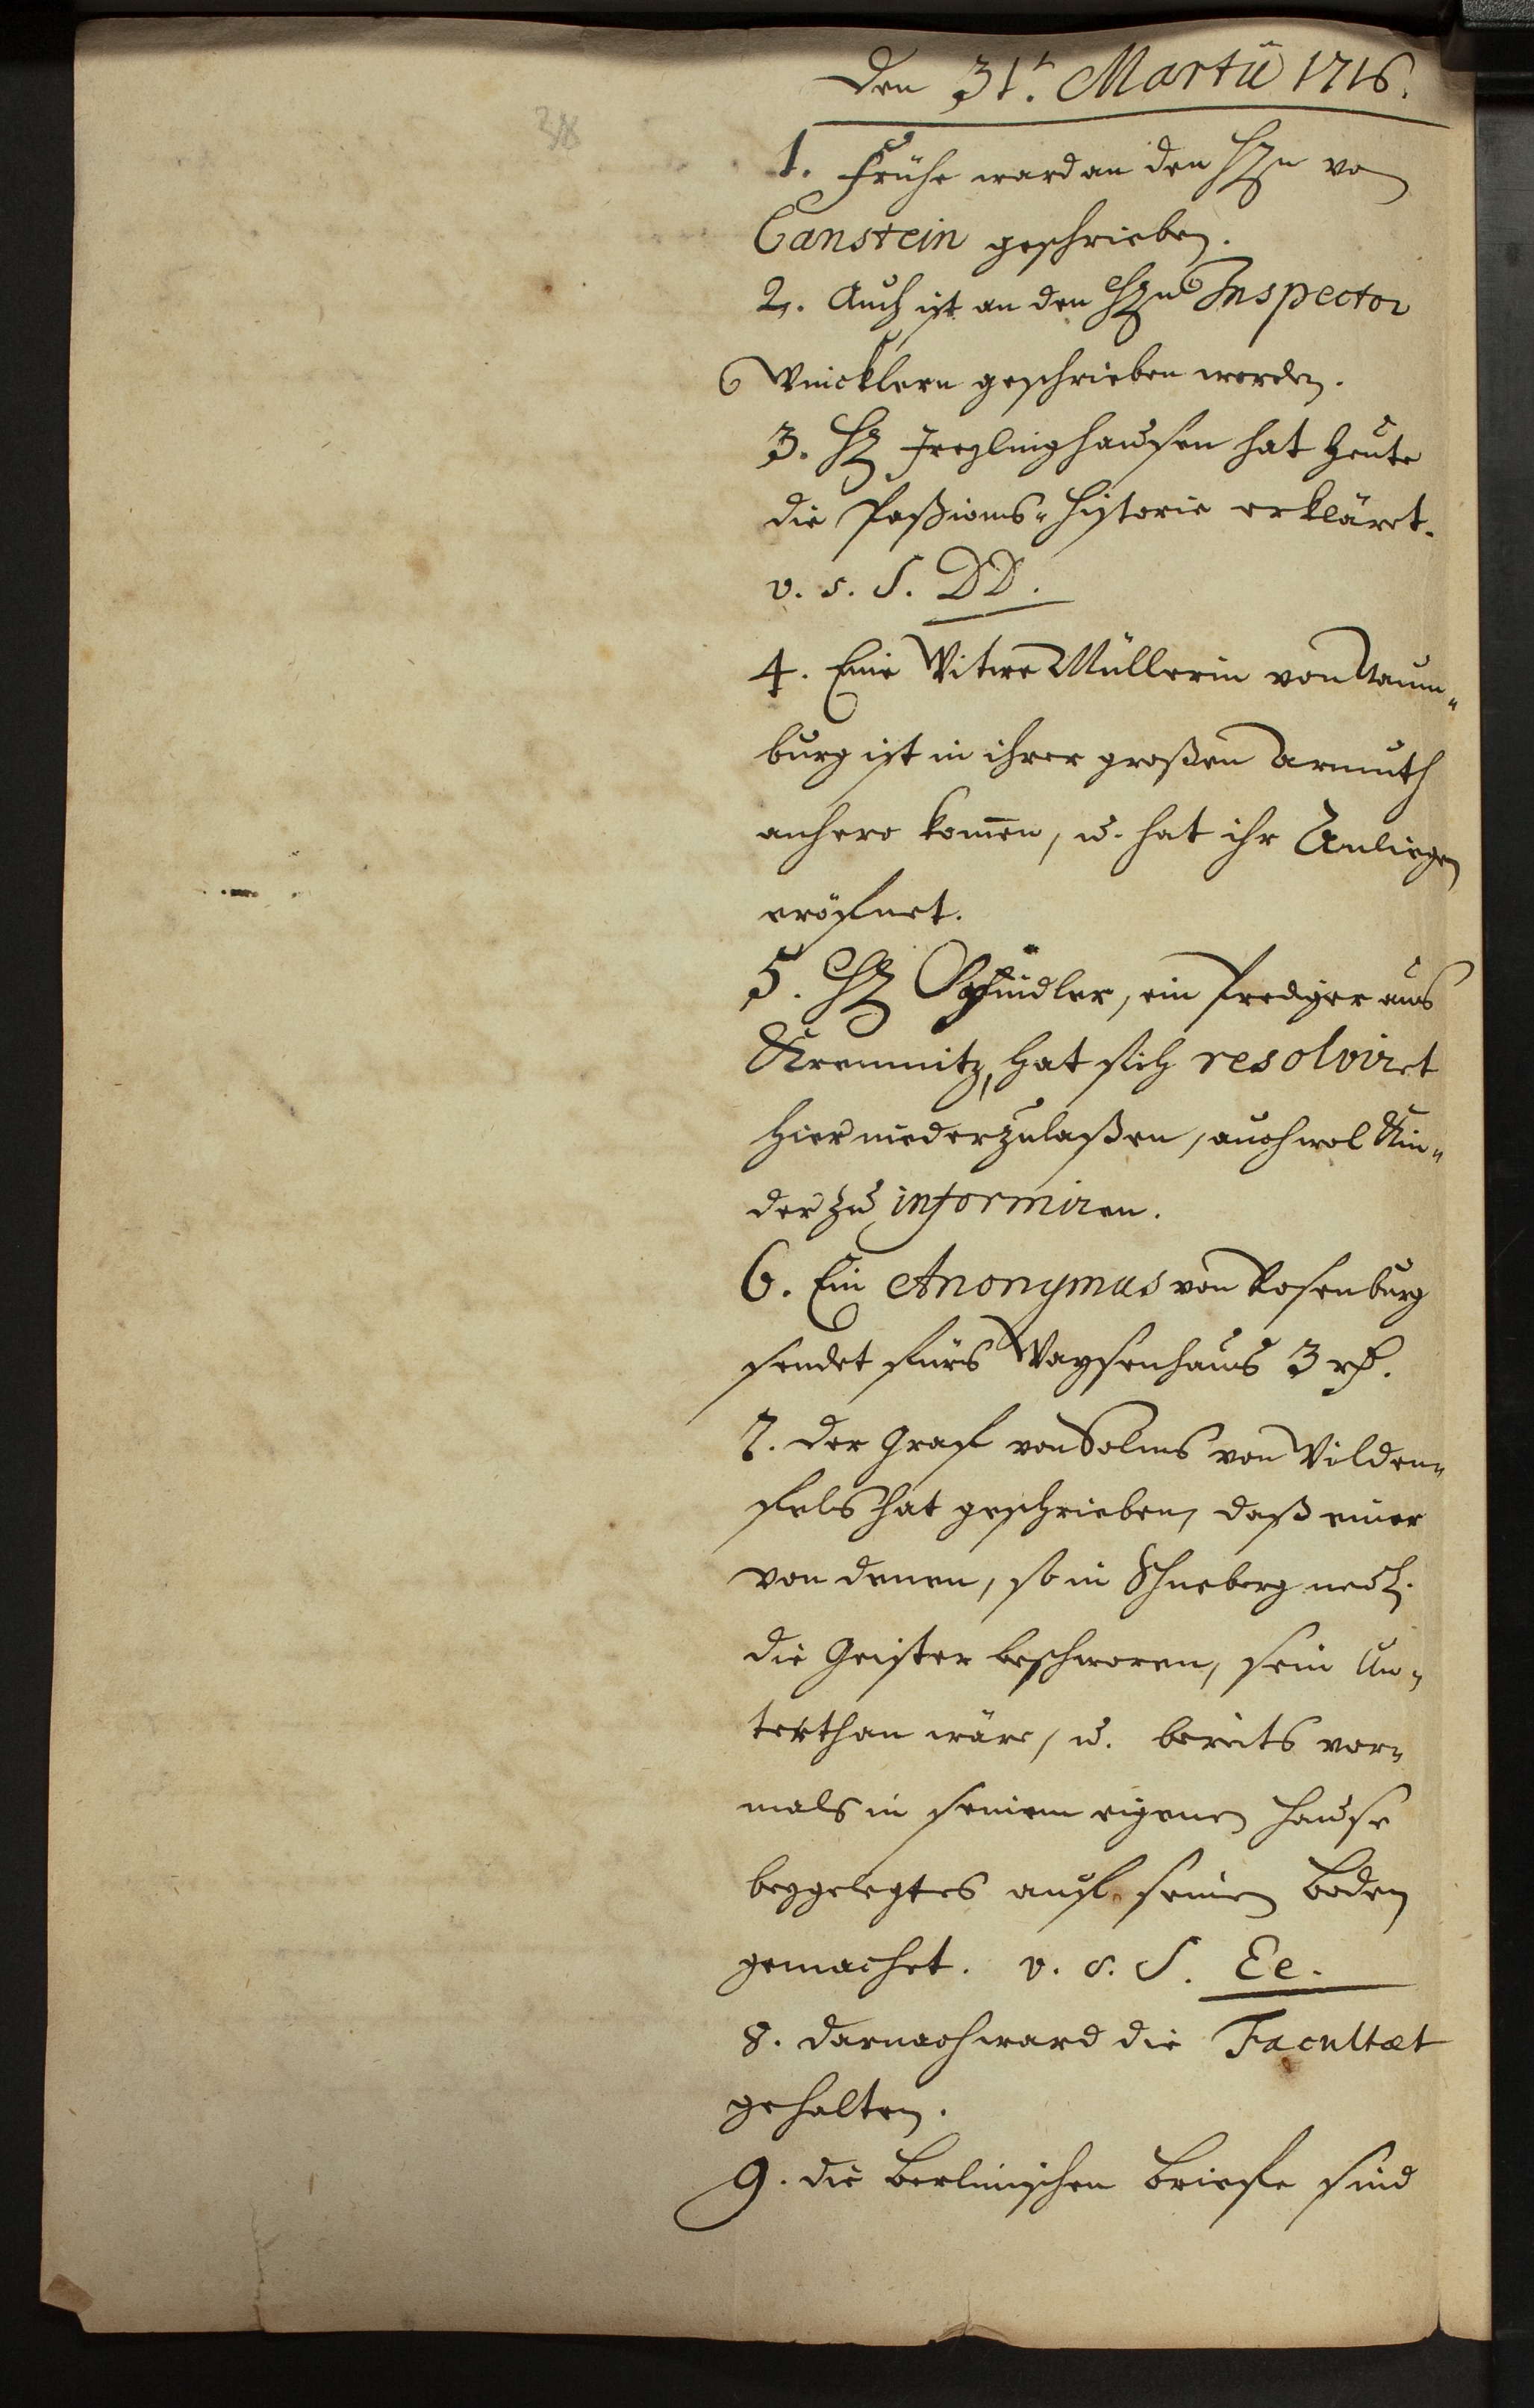 38
Den 31.t Martii 1716.
1. Frühe ward an den H. von
Canstein geschrieben.
2. Auch ist an den Hrn Inspector
Winicklern geschrieben worden.
3. H. Freylinghausen hat heute
die Passions-Historie erkläret.
v. s. S. DD.
4. Eine Witwe Müllerin von Naum-
burg ist in ihrer großen Armuth
anhero kom̄en, u. hat ihr Anliegen
eröfnet.
5. H. Schindler, ein Prediger aus
Kremnitz, hat sich resolviret
hier niederzulaßen, auch wol Kin-
der zu informiren.
6. Ein Anonymus von Rosenburg
sendet fürs Waysenhaus 3 rh.
7. der Graf von Solms von Wilden-
fels hat geschrieben, daß einer
von denen, so in Schneberg neul.
die Geister beschworen, sein Un-
terthan wäre, u. bereits vor-
mals in seinem eigenen Hause
beygelegtes auf seinen Boden
gemachet. v. s. S. Ee.
8. darnach ward die Facultæt
gehalten.
9. die Berlinischen Briefe sind